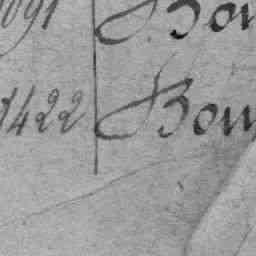 1091 Bou
1422 Bou